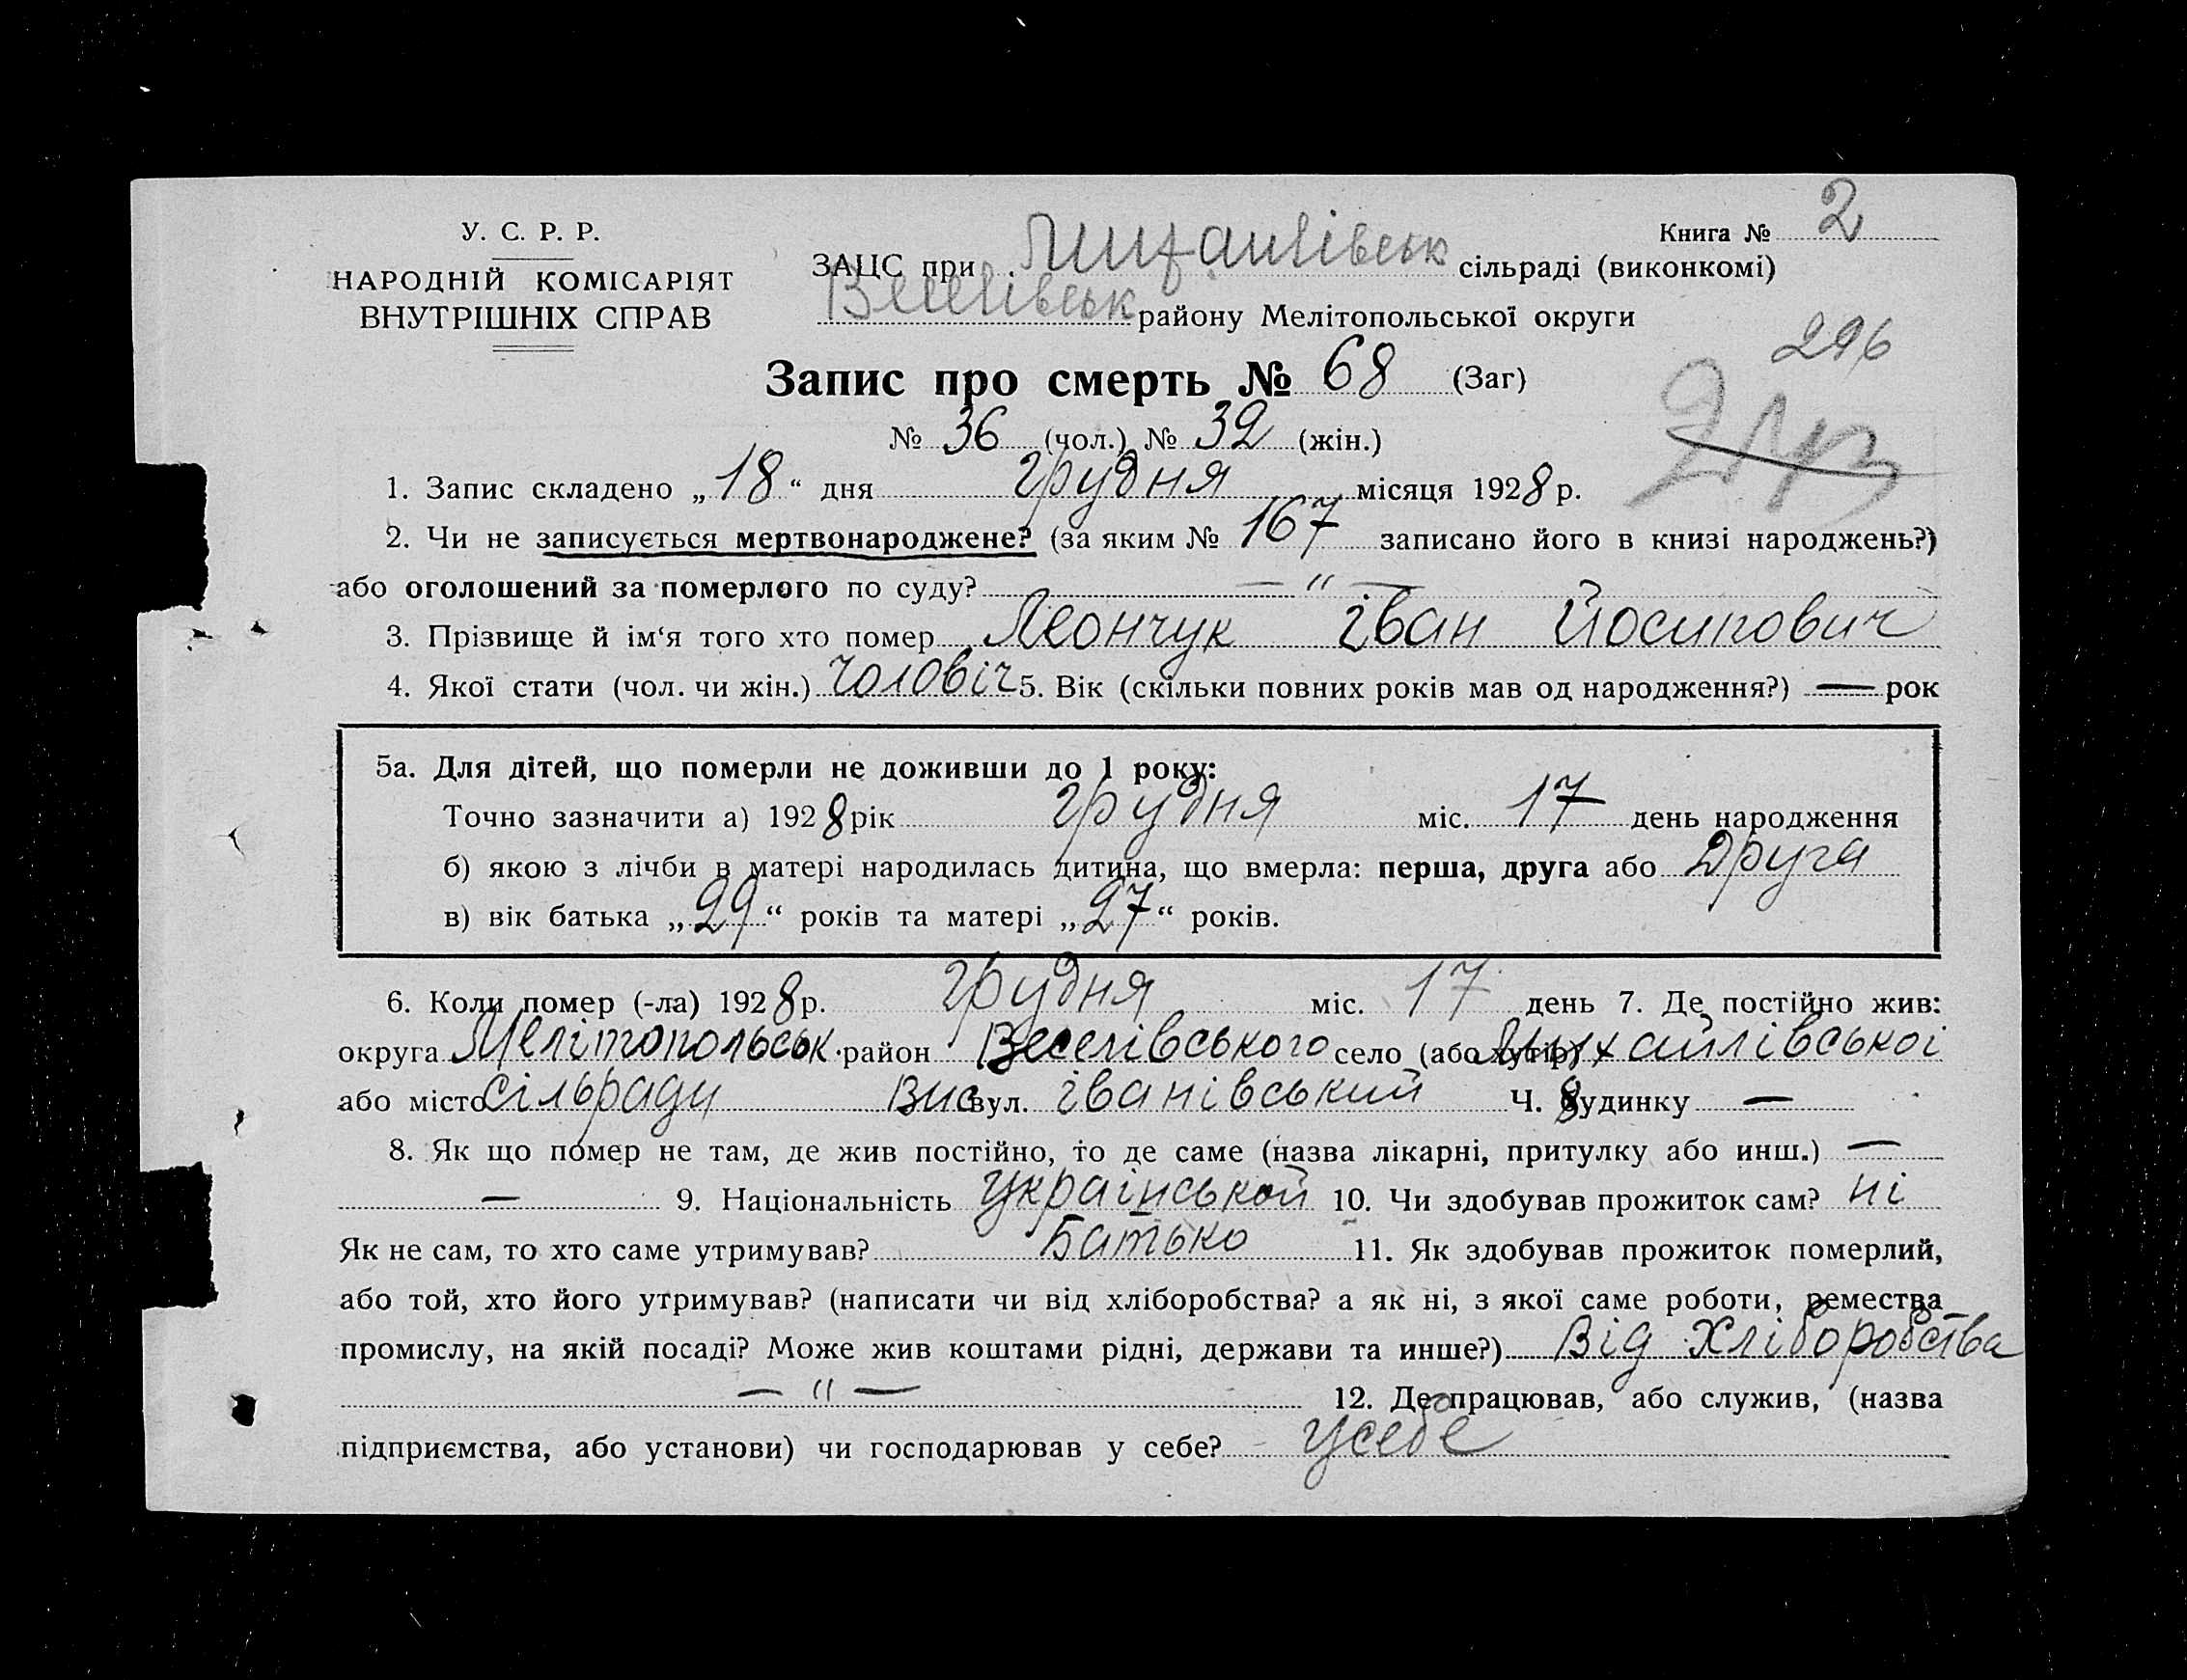 У. С. Р. Р.
НАРОДНІЙ КОМІСАРІЯТ
ВНУТРІШНІХ СПРАВ
Книга № 2
ЗАЦС при Михайлівськ сільраді (виконкомі)
Веселівськ району Мелітопольської округи
296
Запис про смерть № 68 (Заг)
№ 36 (чол.) № 32 (жін.)
1. Запис складено „18“ дня грудня місяця 1928 р.
2. Чи не записується мертвонароджене? (за яким № 167 записано його в книзі народжень?)
або оголошений за померлого по суду? — " —
3. Прізвище й ім‘я того хто помер Леончук Іван Йосипович
4. Якої стати (чол. чи жін.) чоловіч 5. Вік (скільки повних років мав од народження?) — рок
5а. Для дітей, що померли не доживши до 1 року:
Точно зазначити а) 1928 рік грудня міс. 17 день народження
б) якою з лічби в матері народилась дитина, що вмерла: перша, друга або Друга
в) вік батька „29“ років та матері „27“ років.
6. Коли помер (-ла) 1928 р. грудня міс. 17 день 7. Де постійно жив:
округа Мелітопольськ. район Веселівського село (або хутір) Михайлівської
або місто сільради Вис вул. Іванівський Ч. 8 будинку —
8. Як що помер не там, де жив постійно, то де саме (назва лікарні, притулку або инш.) —
— 9. Національність Української 10. Чи здобував прожиток сам? ні
Як не сам, то хто саме утримував? Батько 11. Як здобував прожиток померлий,
або той, хто його утримував? (написати чи від хліборобства? а як ні, з якої саме роботи, ремества
промислу, на якій посаді? Може жив коштами рідні, держави та инше?) Від Хліборобства
— " — 12. Де працював, або служив, (назва
підприємства, або установи) чи господарював у себе? У себе